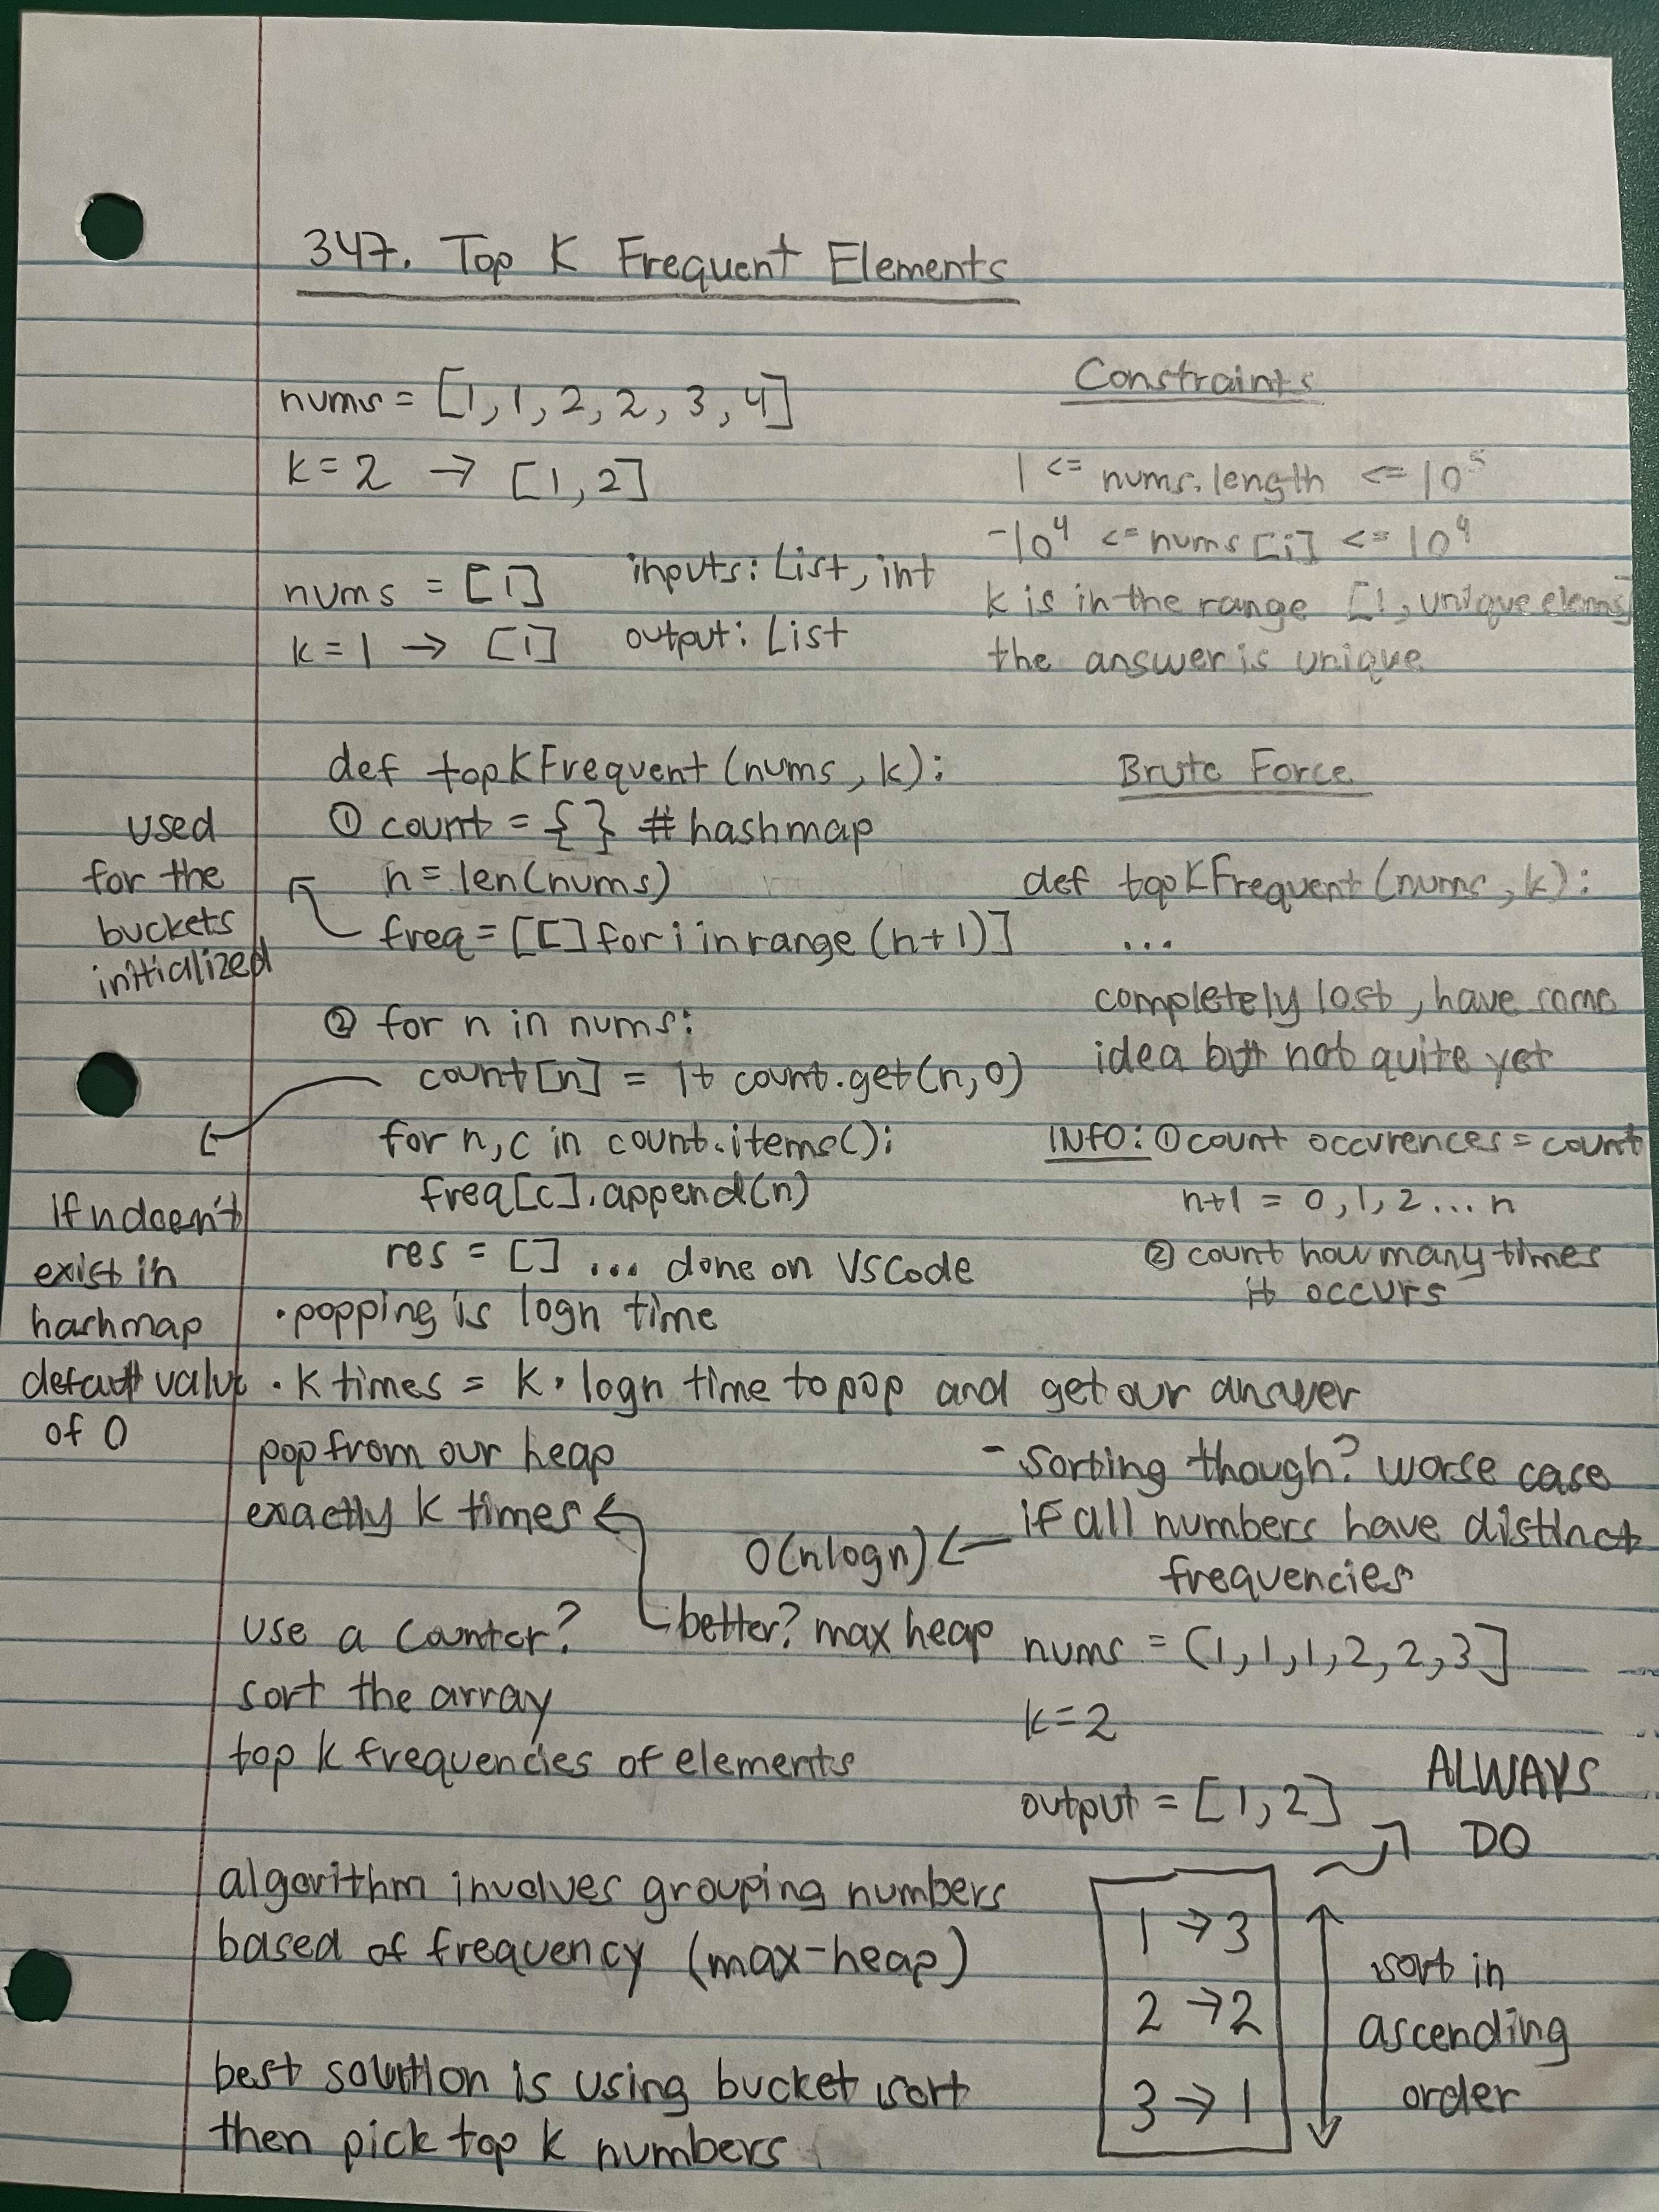 347. Top K Frequent Elements
nums = [1, 1, 2, 2, 3, 4]
k = 2 → [1, 2]
nums = [1]
k = 1 → [1]
inputs: List, int
output: List
Constraints
1 <= nums.length <= 10^5
-10^4 <= nums[i] <= 10^4
k is in the range [1, unique elems]
the answer is unique
def topKFrequent(nums, k):
① count = {} # hashmap
n = len(nums)
freq = [[] for i in range (n+1)]
used
for the
buckets
initialized
② for n in nums:
count[n] = 1+ count.get(n,0)
for n,c in count.items():
freq[c].append(n)
res = [] ... done on VSCode
If n doen't
exist in
hashmap
default value
of 0
Brute Force
def topKFrequent(nums, k):
...
completely lost, have some
idea but not quite yet
INFO: ① count occurences = count
n+1 = 0, 1, 2 ... n
② count how many times
it occurs
• popping is logn time
• k times = k · logn time to pop and get our answer
pop from our heap
exactly k times ←
better? max heap
- sorting though? worse case
if all numbers have distinct
frequencies
O(nlogn) ←
use a counter?
sort the array
top k frequencies of elements
nums = (1, 1, 1, 2, 2, 3]
k = 2
output = [1, 2]
ALWAYS
DO
1 → 3
2 → 2
3 → 1
sort in
ascending
order
algorithm involves grouping numbers
based of frequency (max-heap)
best solution is using bucket sort
then pick top k numbers